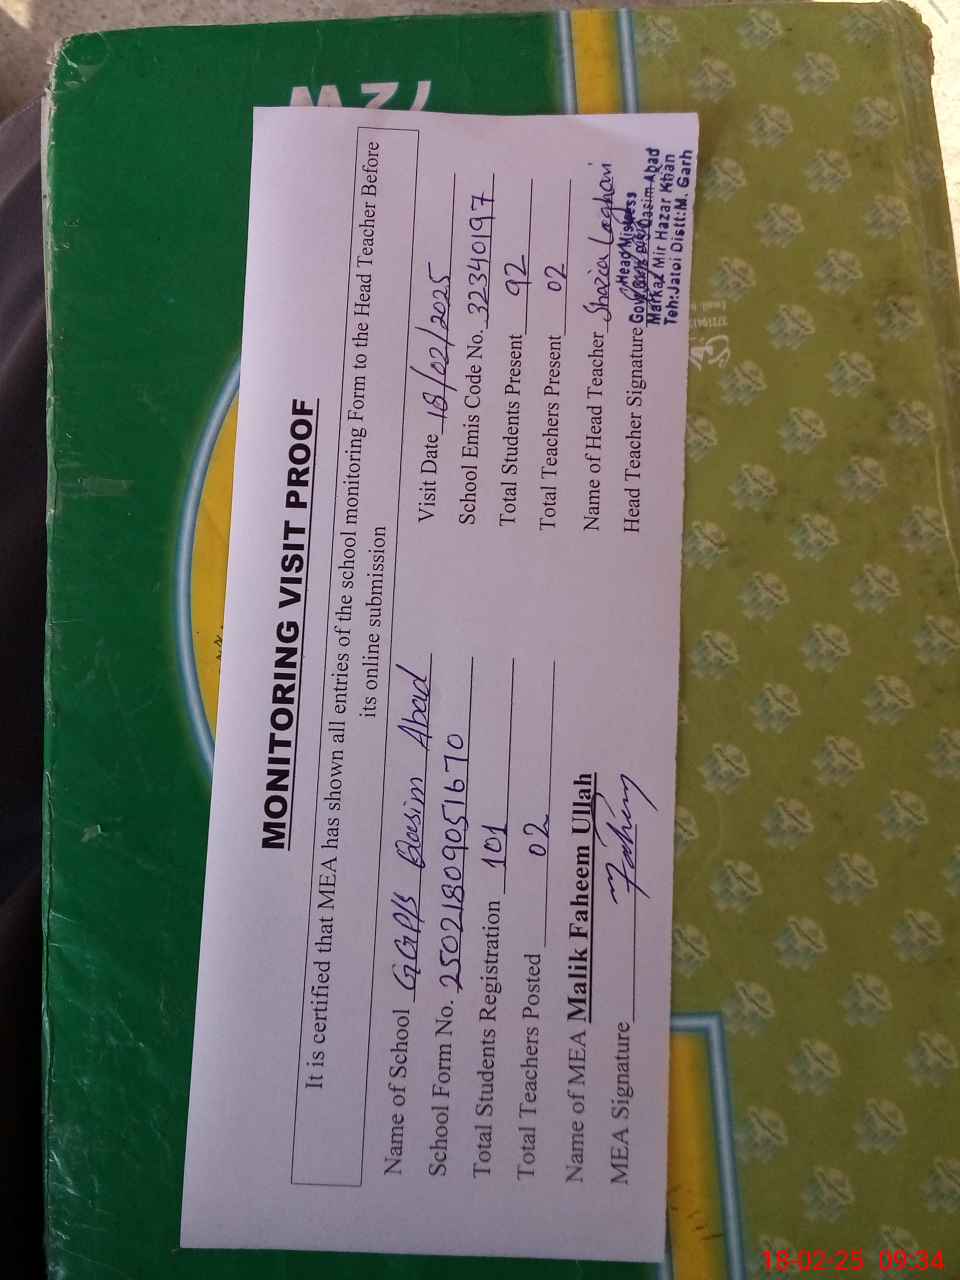 MONITORING VISIT PROOF
It is certified that MEA has shown all entries of the school monitoring Form to the Head Teacher Before
its online submission
Name of School GGP/S Qasim Abad
Visit Date 18/02/2025
School Form No. 25021809051670
School Emis Code No. 32340197
Total Students Registration 101
Total Students Present 92
Total Teachers Posted 02
Total Teachers Present 02
Name of MEA Malik Faheem Ullah
Name of Head Teacher Shazia Laghari
MEA Signature Fahim
Head Teacher Signature
Head Mistress
Qasim Abad
Markaz Mir Hazar Khan
Teh:Jatoi Distt:M. Garh
18-02-25 09:34